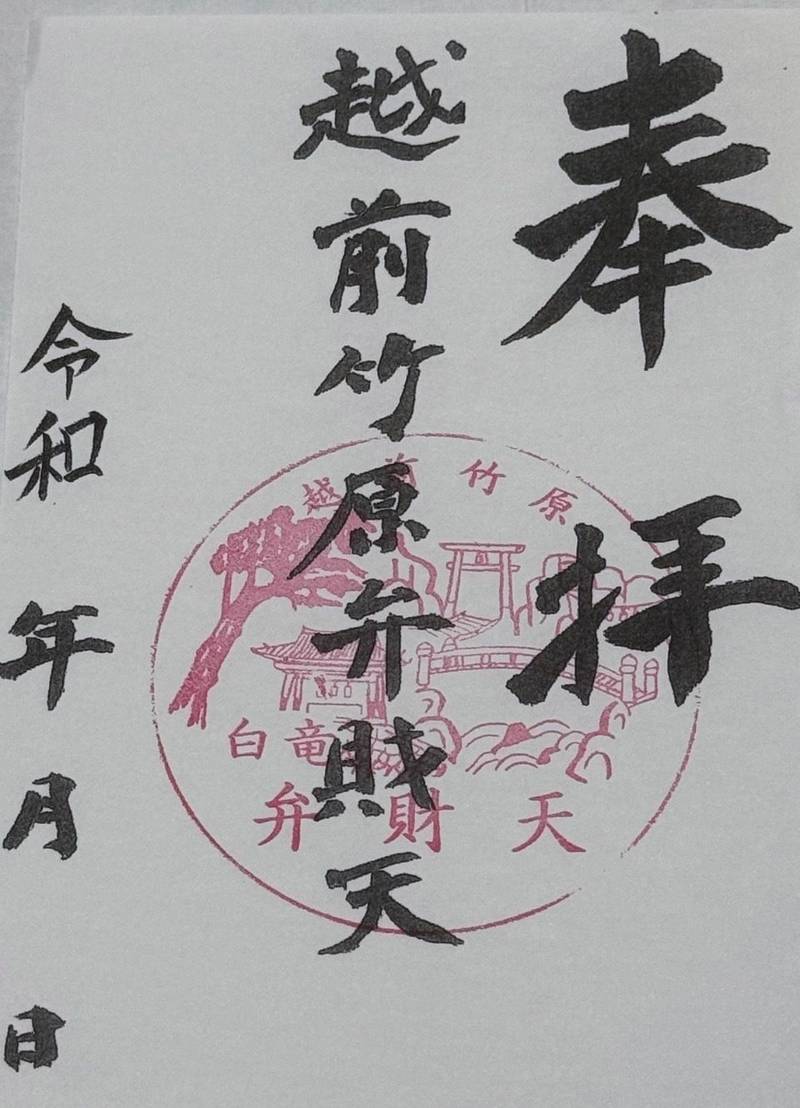 奉拝
越前竹原弁財天
令和 年 月 日
越前竹原
白竜
弁財天